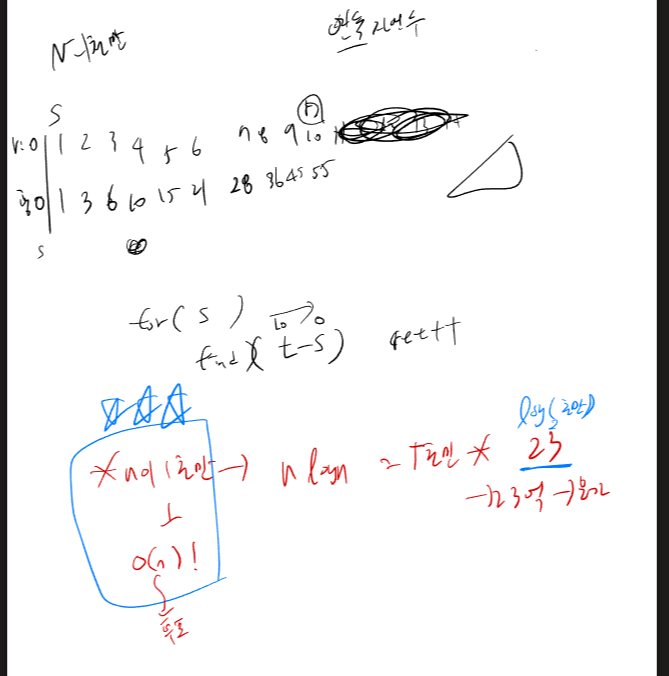 N-1천만
연속 자연수
S
n
v: 0 1 2 3 4 5 6 7 8 9 10
합 0 1 3 6 10 15 21 28 36 45 55
S
for( S ) 10 → 0
find( t-s) ret++
log₂(천만)
* n이 1천만 → n logn = 1천만 * 23
→ 2 3억 →
O(n) !
투포